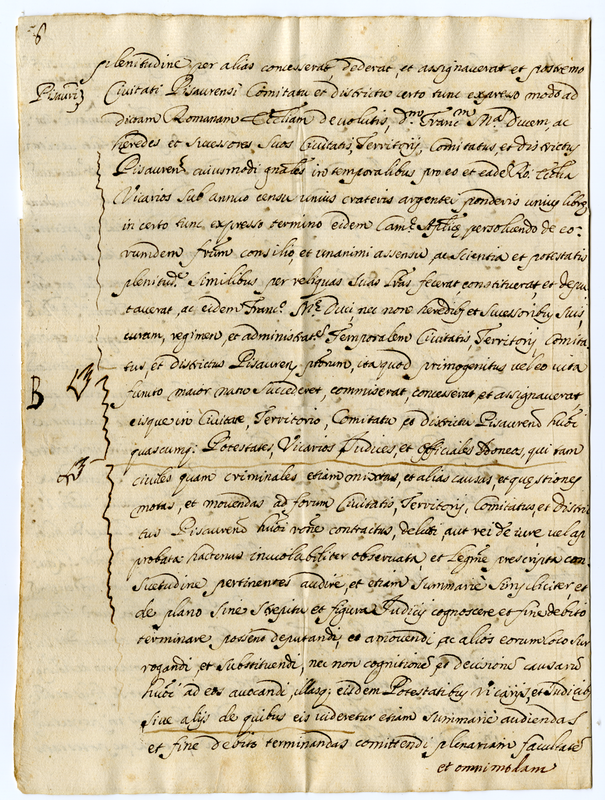 plenitudine per alias concesserat, dederat, et assignaverat et postremo
Pisauri
Civitati Pisaurensi Comitatu et districtu certo tunc expresso modo ad
dictam Romanam Eccliam devolutis, Franc Ma Ducem, ac
heredes et successores suos Civitatis, Territorij, Comitatus, et districtus
Pisauren cuiusmodi gnales in temporalibus pro eo et eade Ro. Ecclia
Vicarios sub annuo censu unius crateris argentei ponderis unius libre
in certo tunc expresso termino eidem Came Aplice persolvendo de eo-
rumdem frum consilio, et unanimi assensu, ac scientia et potestatis
plenitud. similibus per reliquas suas lras fecerat constituerat, et depu
taverat, ac eidem Franc. Ma Duci, nec non heredib, et successoribus suis,
curam, regimen, et administrat Temporalem Civitatis Territorij Comita
tus, et districtus Pisauren, ptorum, ita quod primogenitus vel eo vita
B
functo maior natu succederet, commiserat, concesserat, et assignaverat
eisque in Civitate, Territorio, Comitatu et districtu Pisauren huoi
quascumq. Potestates, Vicarios Judices, et Officiales Idoneos, qui tam
civiles quam criminales etiam mixtas, et alias causas, et questiones
motas, et movendas ad forum Civitatis, Territorij, Comitatus, et distric
tus Pisauren huoi rone contractus, delicti, aut rei de iure vel ap
probata hactenus inviolabiliter observata, et legme prescripta con
suetudine pertinentes audire, et etiam summarie simpliciter, et
de plano sine strepitu et figura Judicij cognoscere et fine debito
terminare possent deputandi, et amovendi ac alios eorum loco sur
rogandi, et substituendi, nec non cognitione et decisione causaru
huoi ad eos avocandi, illasq; eisdem Potestatibus Vicarijs, et Judicib
sive alijs de quibus eis videretur etiam summarie audiendas
et fine debito terminandas comittendi plenariam facultate
et omnimodam